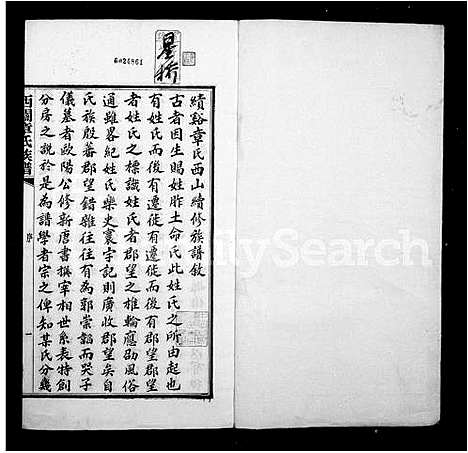 續谿章氏西山續修族譜敘
古者因生賜姓胙土命氏此姓氏之所由起也
有姓氏而後有遷徙有遷徙而後有郡望郡望
者姓氏之標識姓氏者郡望之椎輪應劭風俗
通雖畧紀姓氏樂史寰宇記則廣收郡望矣自
氏族殷蕃郡望錯雜往往有為郭崇韜而哭子
儀墓者歐陽公修新唐書撰宰相世系表特創
分房之說於是為譜學者宗之俾知某氏分幾
西關章氏族譜
序
一
6026861
FamilySearch